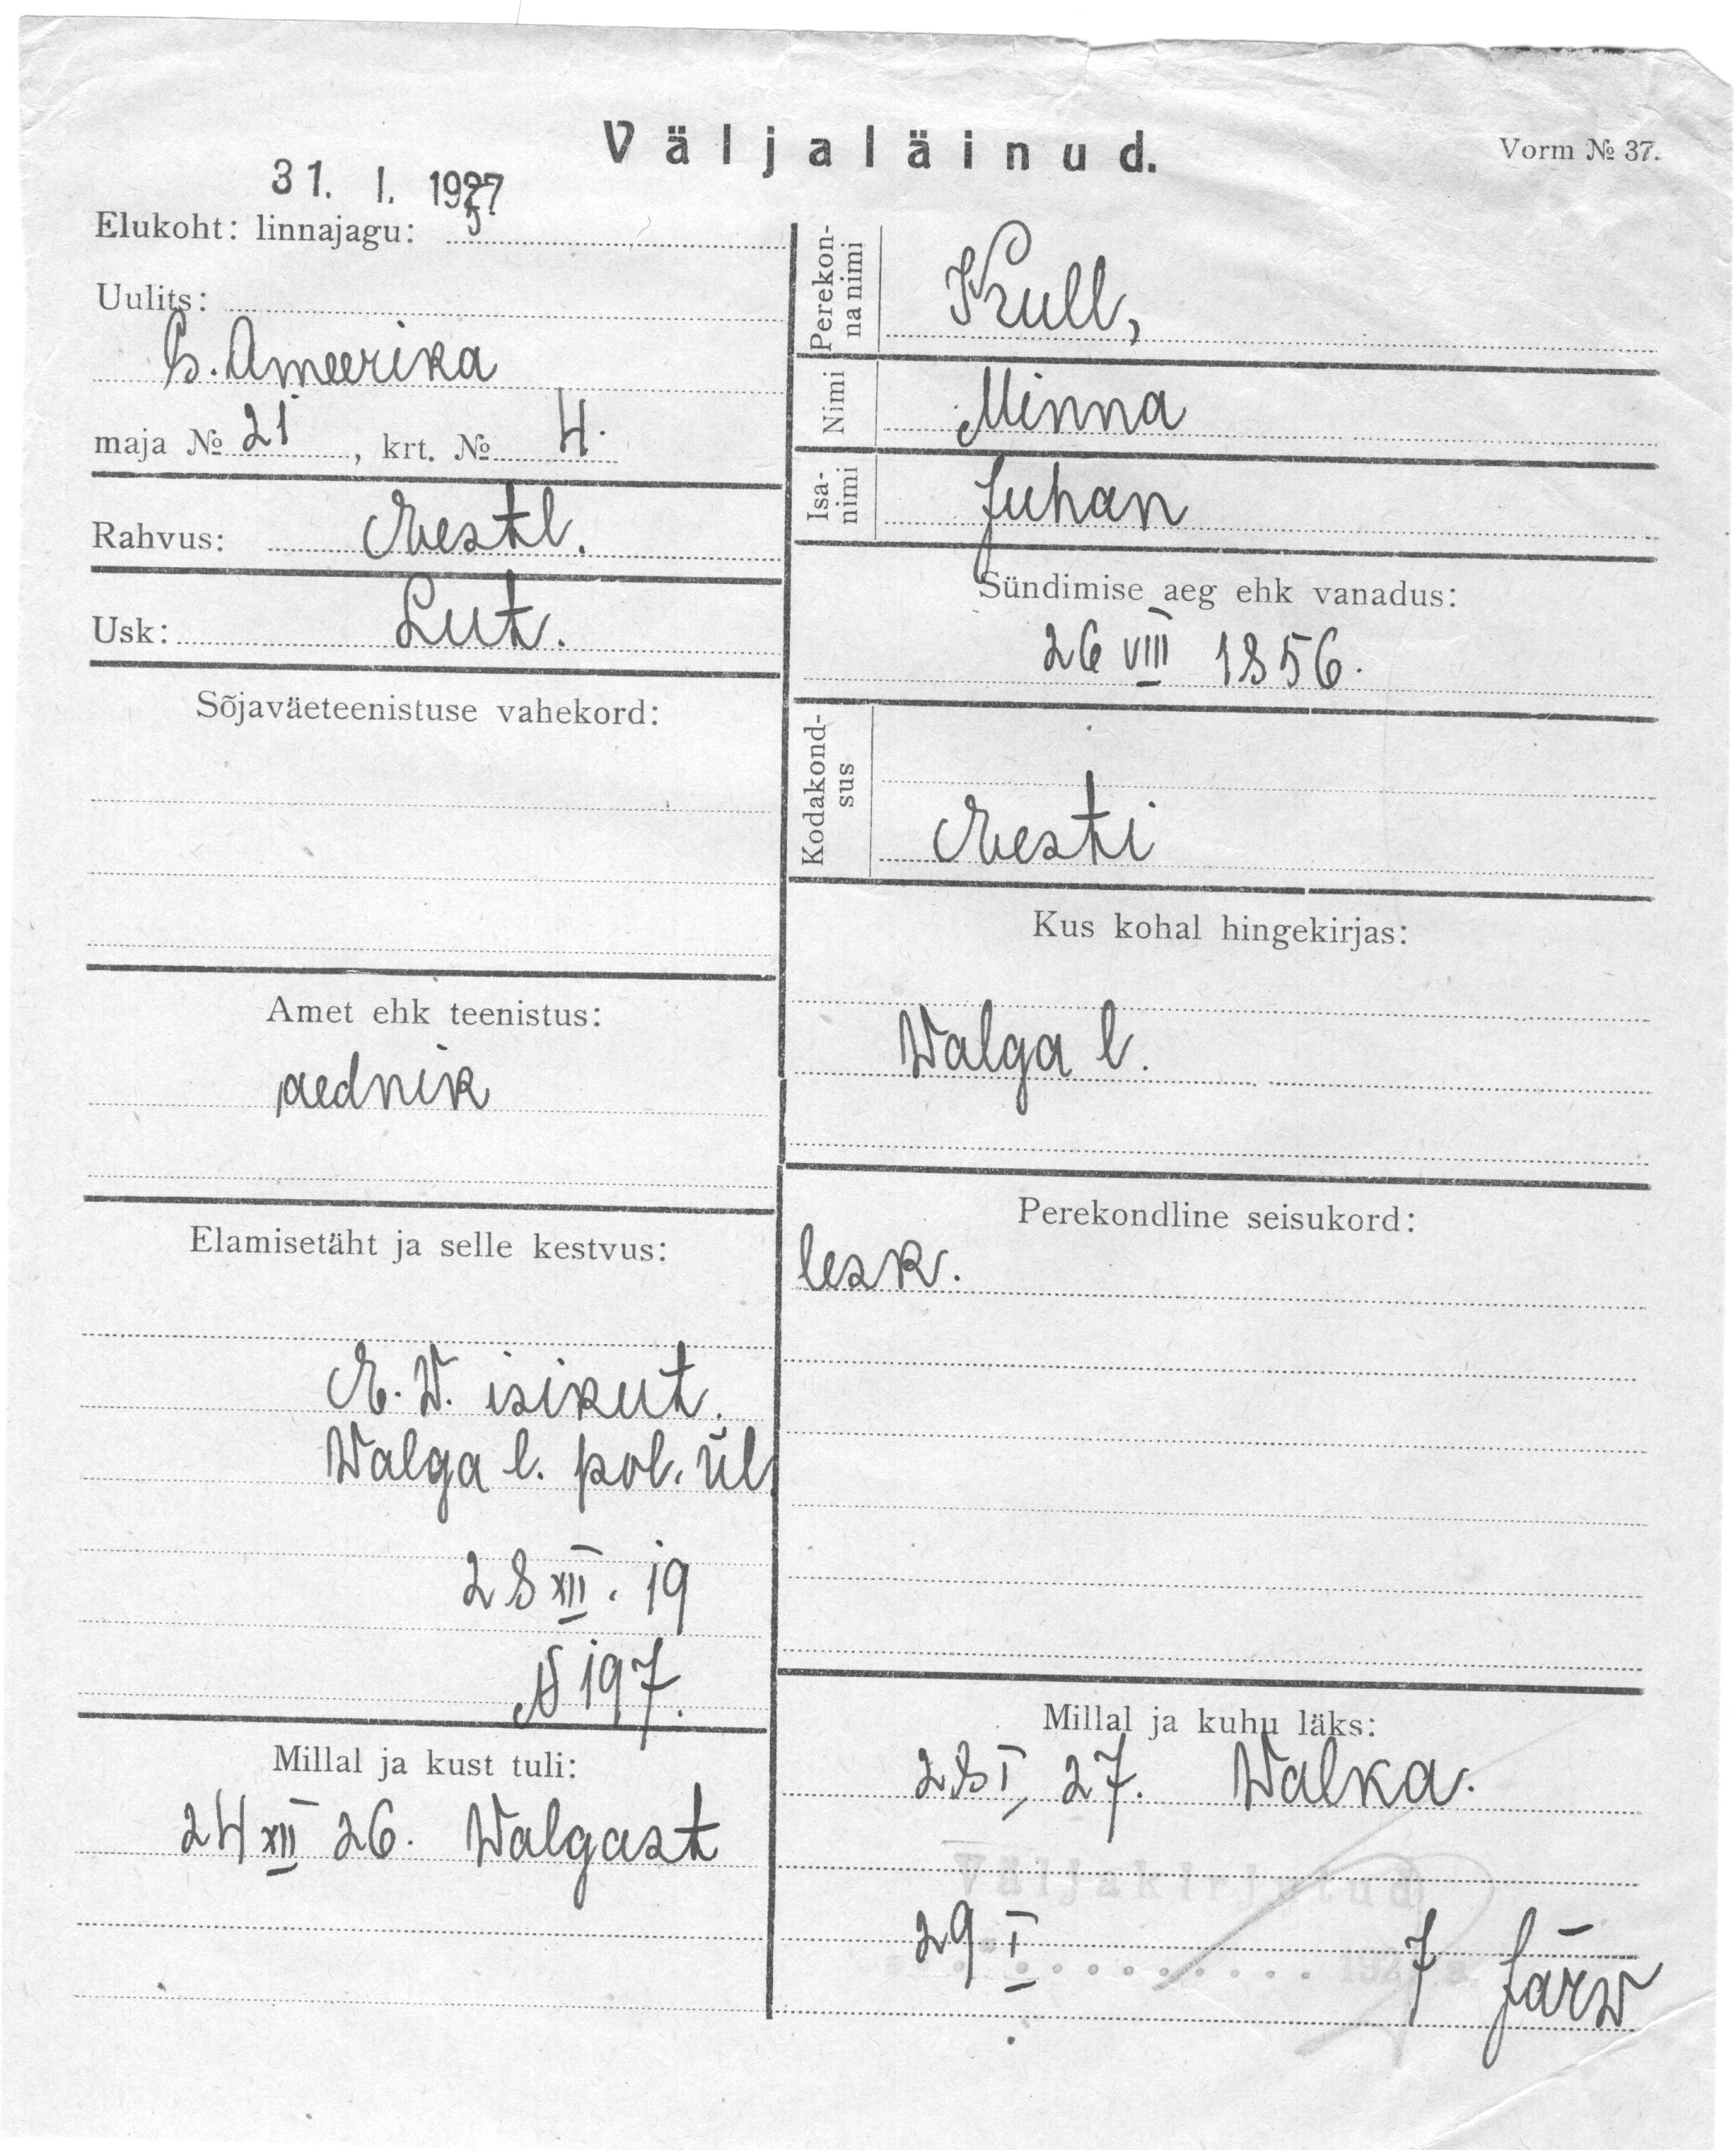 Väljaläinud.
Vorm № 37.
31. I. 1927
Elukoht: linnajagu: 5
Uulits:
S. Ameerika
maja № 21, krt. № 4.
Rahvus: Eestl.
Usk: Lut.
Sõjaväeteenistuse vahekord:
Amet ehk teenistus:
aednik
Elamisetäht ja selle kestvus:
E. W. isikut.
Walga l. pol. ül.
28 XII. 19
№ 197.
Millal ja kust tuli:
24 XII 26. Walgast
Perekon-
na nimi
Krull,
Nimi
Minna
Isa-
nimi
Juhan
Sündimise aeg ehk vanadus:
26 VIII 1856.
Kodakond-
sus
Eesti
Kus kohal hingekirjas:
Walga l.
Perekondline seisukord:
lesk.
Millal ja kuhu läks:
28 I 27. Walka.
Väljakirjutud
29 I 1927 a. Järw